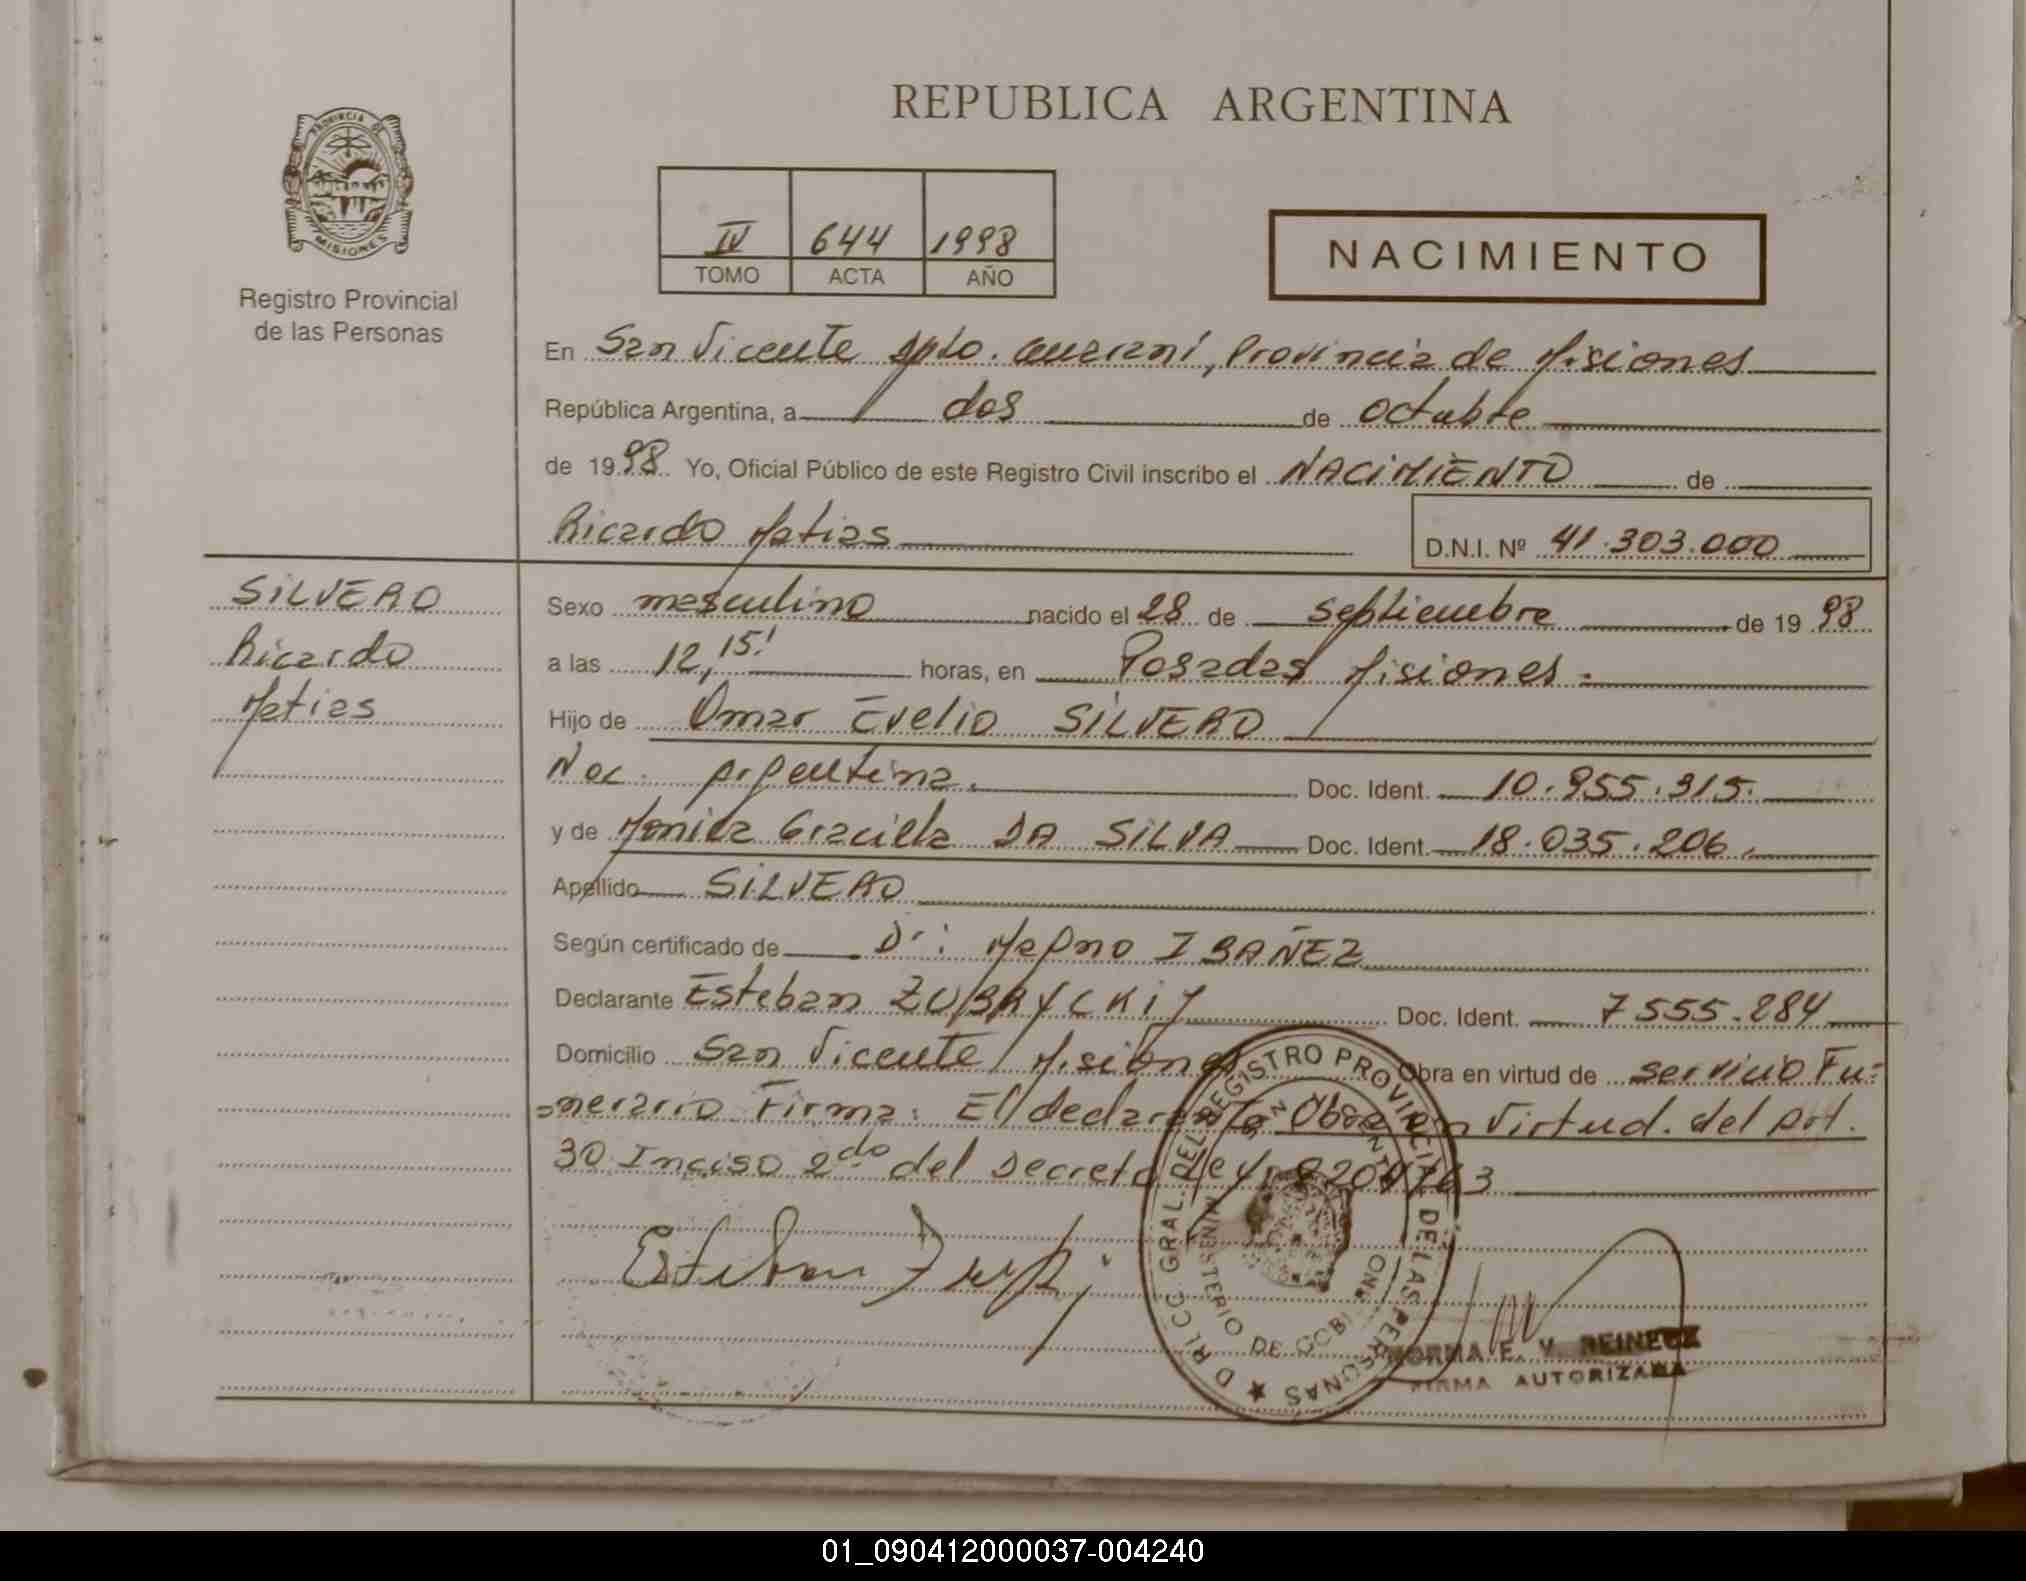 REPUBLICA ARGENTINA
PROVINCIA DE
MISIONES
Registro Provincial
de las Personas
IV 644 1998
TOMO ACTA AÑO
NACIMIENTO
En San Vicente Dpto. Guaraní, Provincia de Misiones
República Argentina, a dos de octubre
de 1998 Yo, Oficial Público de este Registro Civil inscribo el NACIMIENTO de
Ricardo Matias D.N.I. Nº 41.303.000
SILVERO
Ricardo
Matias
Sexo masculino nacido el 28 de septiembre de 1998
a las 12,15' horas, en Posadas Misiones.
Hijo de Omar Evelio SILVERO
Nac. Argentina. Doc. Ident. 10.955.315.
y de Monica Graciela DA SILVA Doc. Ident. 18.035.206.
Apellido SILVERO
Según certificado de Dr: Magno IBAÑEZ
Declarante Esteban ZUBRYCKI Doc. Ident. 7555.284
Domicilio San Vicente Misiones Obra en virtud de servicio Fu=
=nerario Firma: El declarante Obra en Virtud. del Art.
30 Inciso 2do del Decreto Ley 8204/63
Esteban
DIRICC. GRAL. DEL REGISTRO PROVINCIAL DE LAS PERSONAS
MINISTERIO DE GOBIERNO
SAN VICENTE
NORMA E. V. REINECK
FIRMA AUTORIZADA
01_090412000037-004240